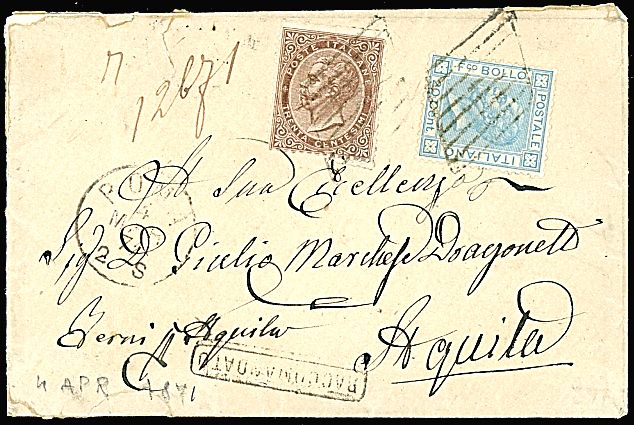 n
12671
POSTE ITALIANE
TRENTA CENTESIMI
F.CO BOLLO
POSTALE
ITALIANO
20 Cent
A Sua Eccellenza
Sig D. Giulio Marchese Dragonetti
Terni p Aquila
Aquila
RACCOMANDATO
4 APR 1871